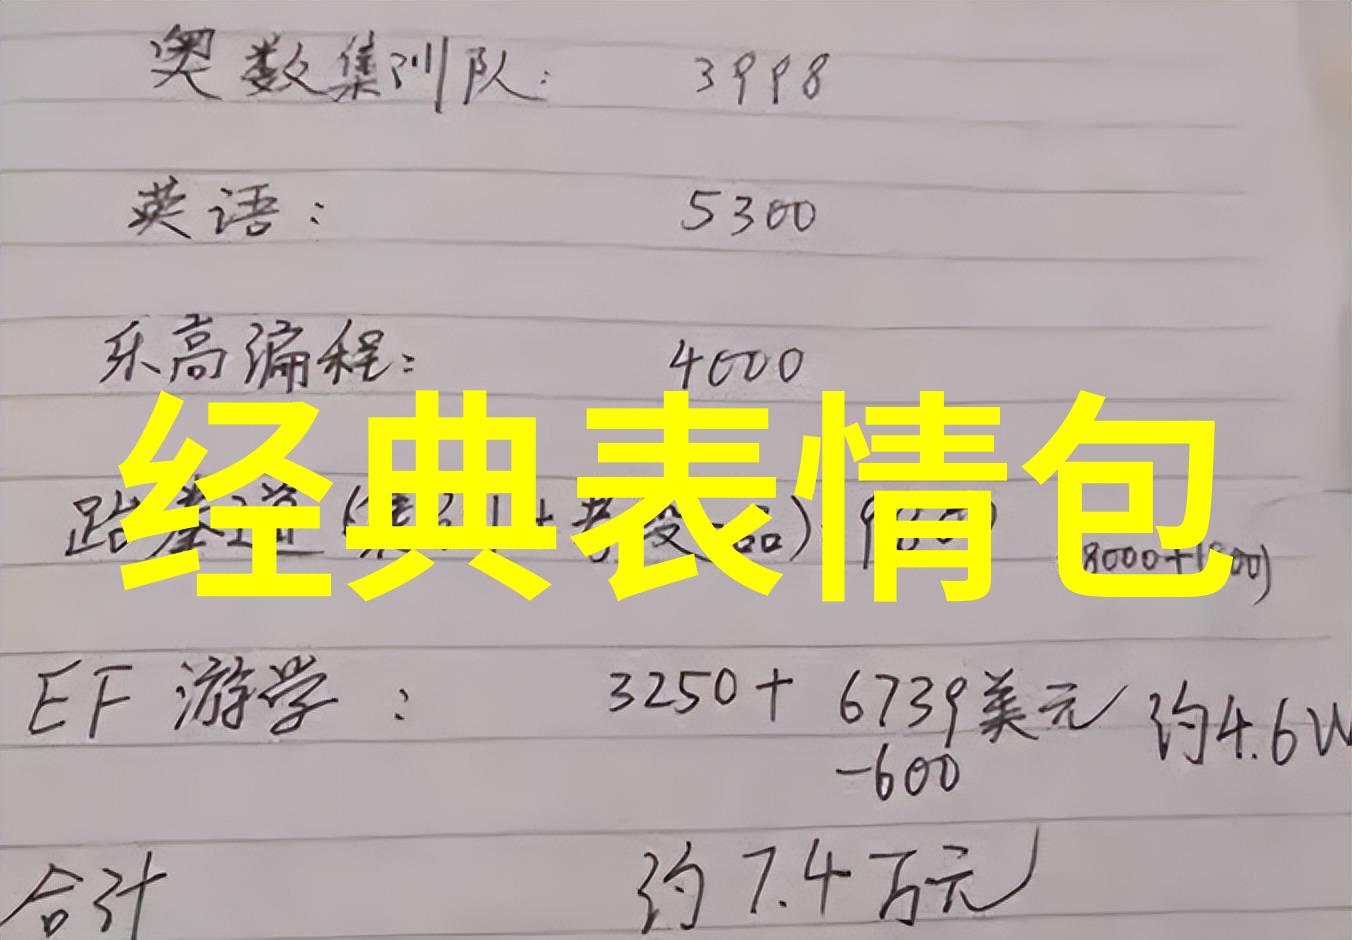 奥数集训队: 3998
英语: 5300
乐高编程: 4000
经典表情包
跆拳道(集训+考段一品) 980 (8000+1800)
EF 游学: 3250+6739美元 约4.6W
-600
合计 约7.4万元